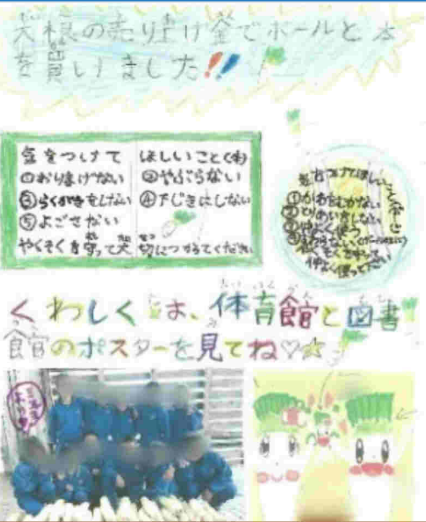 大根の売り上げ金でボールと本
を買いました!!
気をつけて ほしいこと(本)
①おりまげない ②やぶらない
③らくがきをしない ④下じきにしない
⑤よごさない
やくそくを守って大切につかってください
気をつけてほしいこと
仲よく使ってください
くわしくは、体育館と図書
館のポスターを見てね♡☆